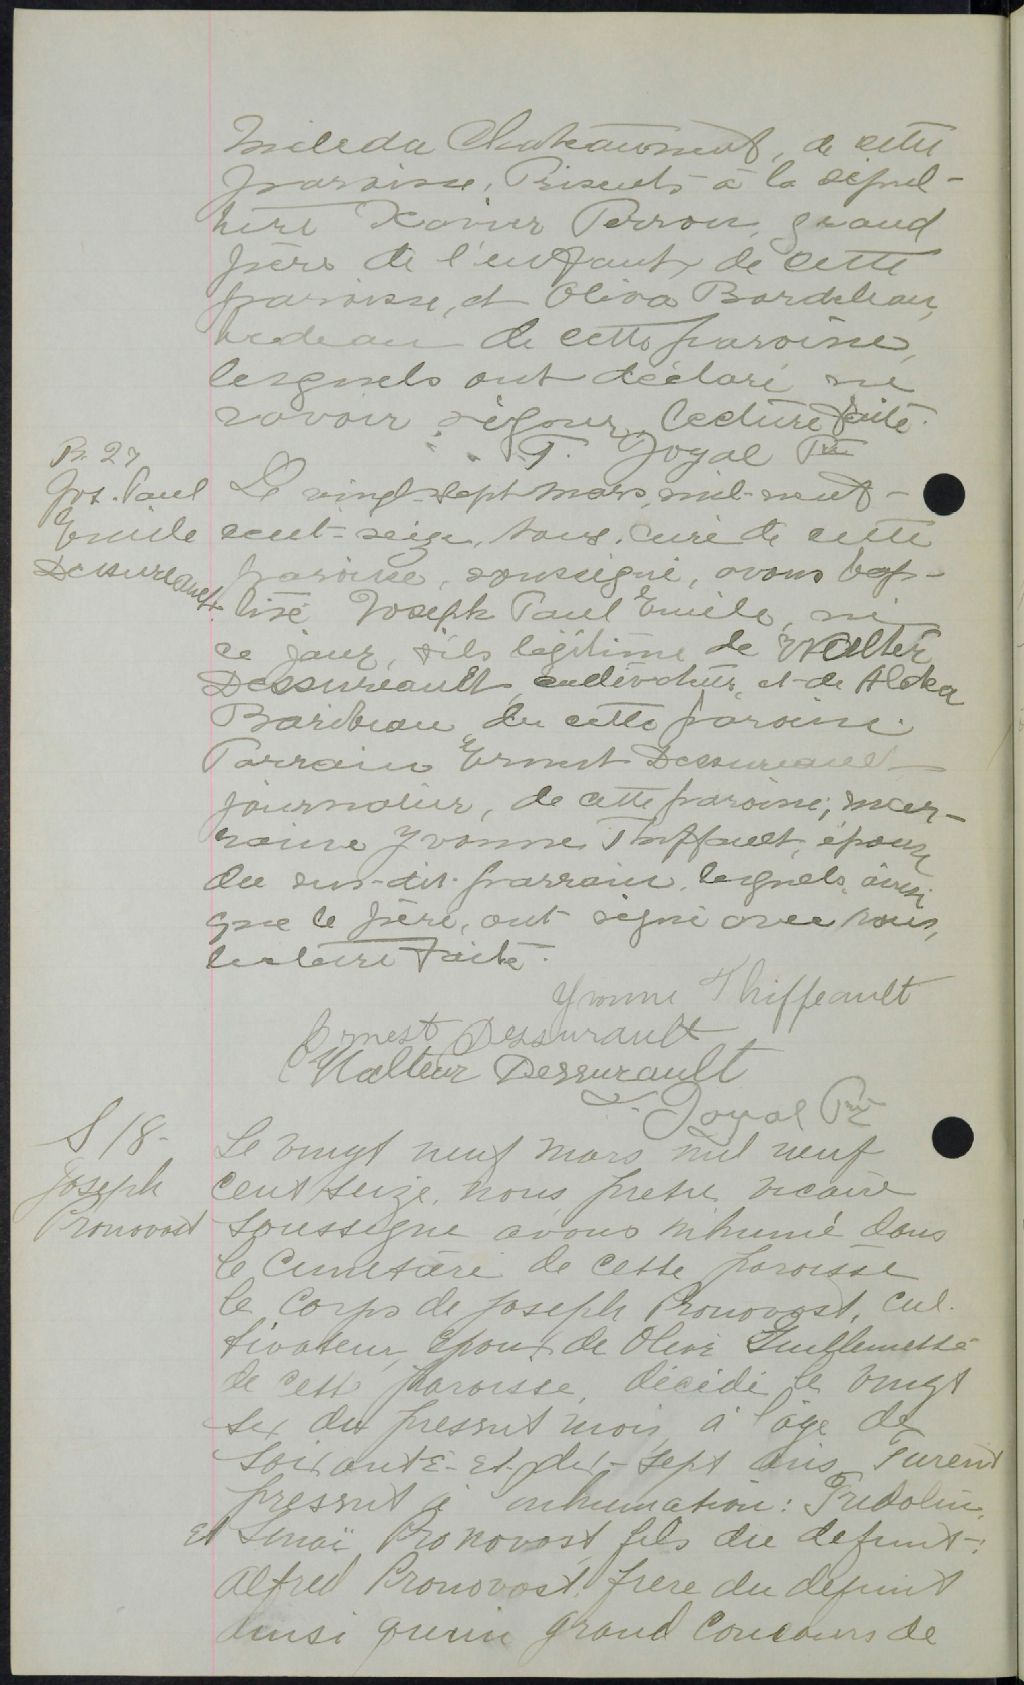 Mileda Chateauneuf, de cette
paroisse. Présents à la sépul-
ture Xavier Perron, grand
père de l'enfant, de cette
paroisse, et Oliva Bordeleau,
bedeau de cette paroisse,
lesquels ont déclaré ne
savoir signer. Lecture faite.
T. Joyal Ptre
B. 27
Jos. Paul
Emile
Dessureault.
Le vingt-sept mars, mil-neuf-
cent-seize, nous, curé de cette
paroisse, soussigné, avons bap-
tisé Joseph Paul Emile, né
ce jour, fils légitime de Walter
Dessureault, cultivateur, et de Alda
Baribeau, de cette paroisse.
Parrain Ernest Dessureault
journalier, de cette paroisse; mar-
raine Yvonne Thiffault, épouse
du sus-dit parrain, lesquels, ainsi
que le père, ont signé avec nous,
lecture faite.
Yvonne Thiffeault
Ernest Dessurault
Walteur Dessurault
T. Joyal Ptre
S 18-
Joseph
Pronovost
Le vingt neuf mars mil neuf
cent seize, nous prêtre vicaire
soussigné avons inhumé dans
le cimetière de cette paroisse
le corps de Joseph Pronovost, cul-
tivateur, époux de Olive Guillemette
de cette paroisse, décédé le vingt
six du present mois à l'âge de
soixante-et-dix-sept ans. Furent
present à inhumation: Fridolin,
et Sinaï Pronovost, fils du defunt:
Alfred Pronovost, frere du defunt
ainsi qu'un grand concours de